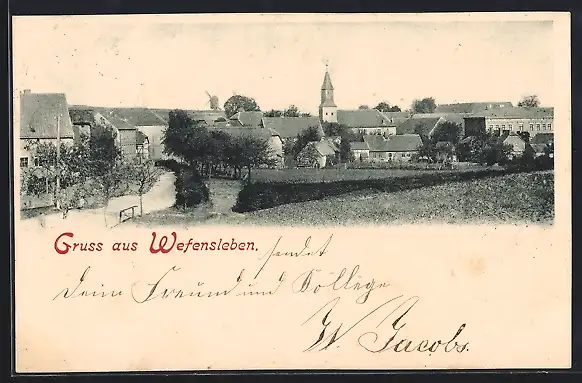 Gruss aus Wefensleben.
sendet
Dein Freund und Kollege
W. Jacobs.